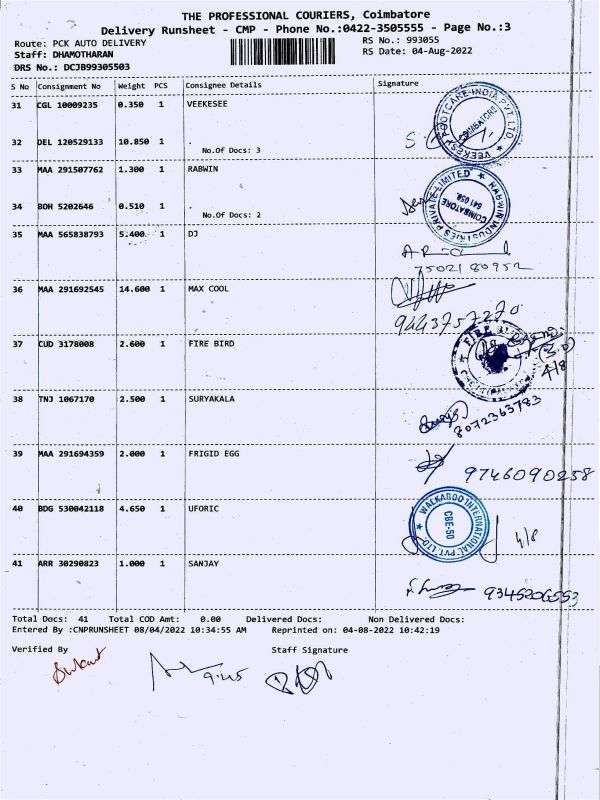 THE PROFESSIONAL COURIERS, Coimbatore
Delivery Runsheet - CMP - Phone No.:0422-3505555 - Page No.:3
Route: PCK AUTO DELIVERY
RS No.: 993055
Staff: DHAMOTHARAN
RS Date: 04-Aug-2022
DRS No.: DCJB99305503
S No Consignment No Weight PCS Consignee Details Signature
31 CGL 10009235 0.350 1 VEEKESEE
VEEKESEE FOOTCARE INDIA PVT. LTD.
COIMBATORE
32 DEL 120529133 10.850 1 .
No.Of Docs: 3
33 MAA 291507762 1.300 1 RABWIN
RABWIN INDUSTRIES PRIVATE LIMITED
COIMBATORE
641 050.
34 BOH 5202646 0.510 1 .
No.Of Docs: 2
35 MAA 565838793 5.400 1 DJ
75021 80952
36 MAA 291692545 14.600 1 MAX COOL
9443757270
37 CUD 3178008 2.600 1 FIRE BIRD
FIRE
4/8
38 TNJ 1067170 2.500 1 SURYAKALA
8072363783
39 MAA 291694359 2.000 1 FRIGID EGG
9746090258
40 BDG 530042118 4.650 1 UFORIC
WALKAROO INTERNATIONAL PVT. LTD.
CBE-50
4/8
41 ARR 30290823 1.000 1 SANJAY
9345206553
Total Docs: 41 Total COD Amt: 0.00 Delivered Docs: Non Delivered Docs:
Entered By :CNPRUNSHEET 08/04/2022 10:34:55 AM Reprinted on: 04-08-2022 10:42:19
Verified By Staff Signature
9:45